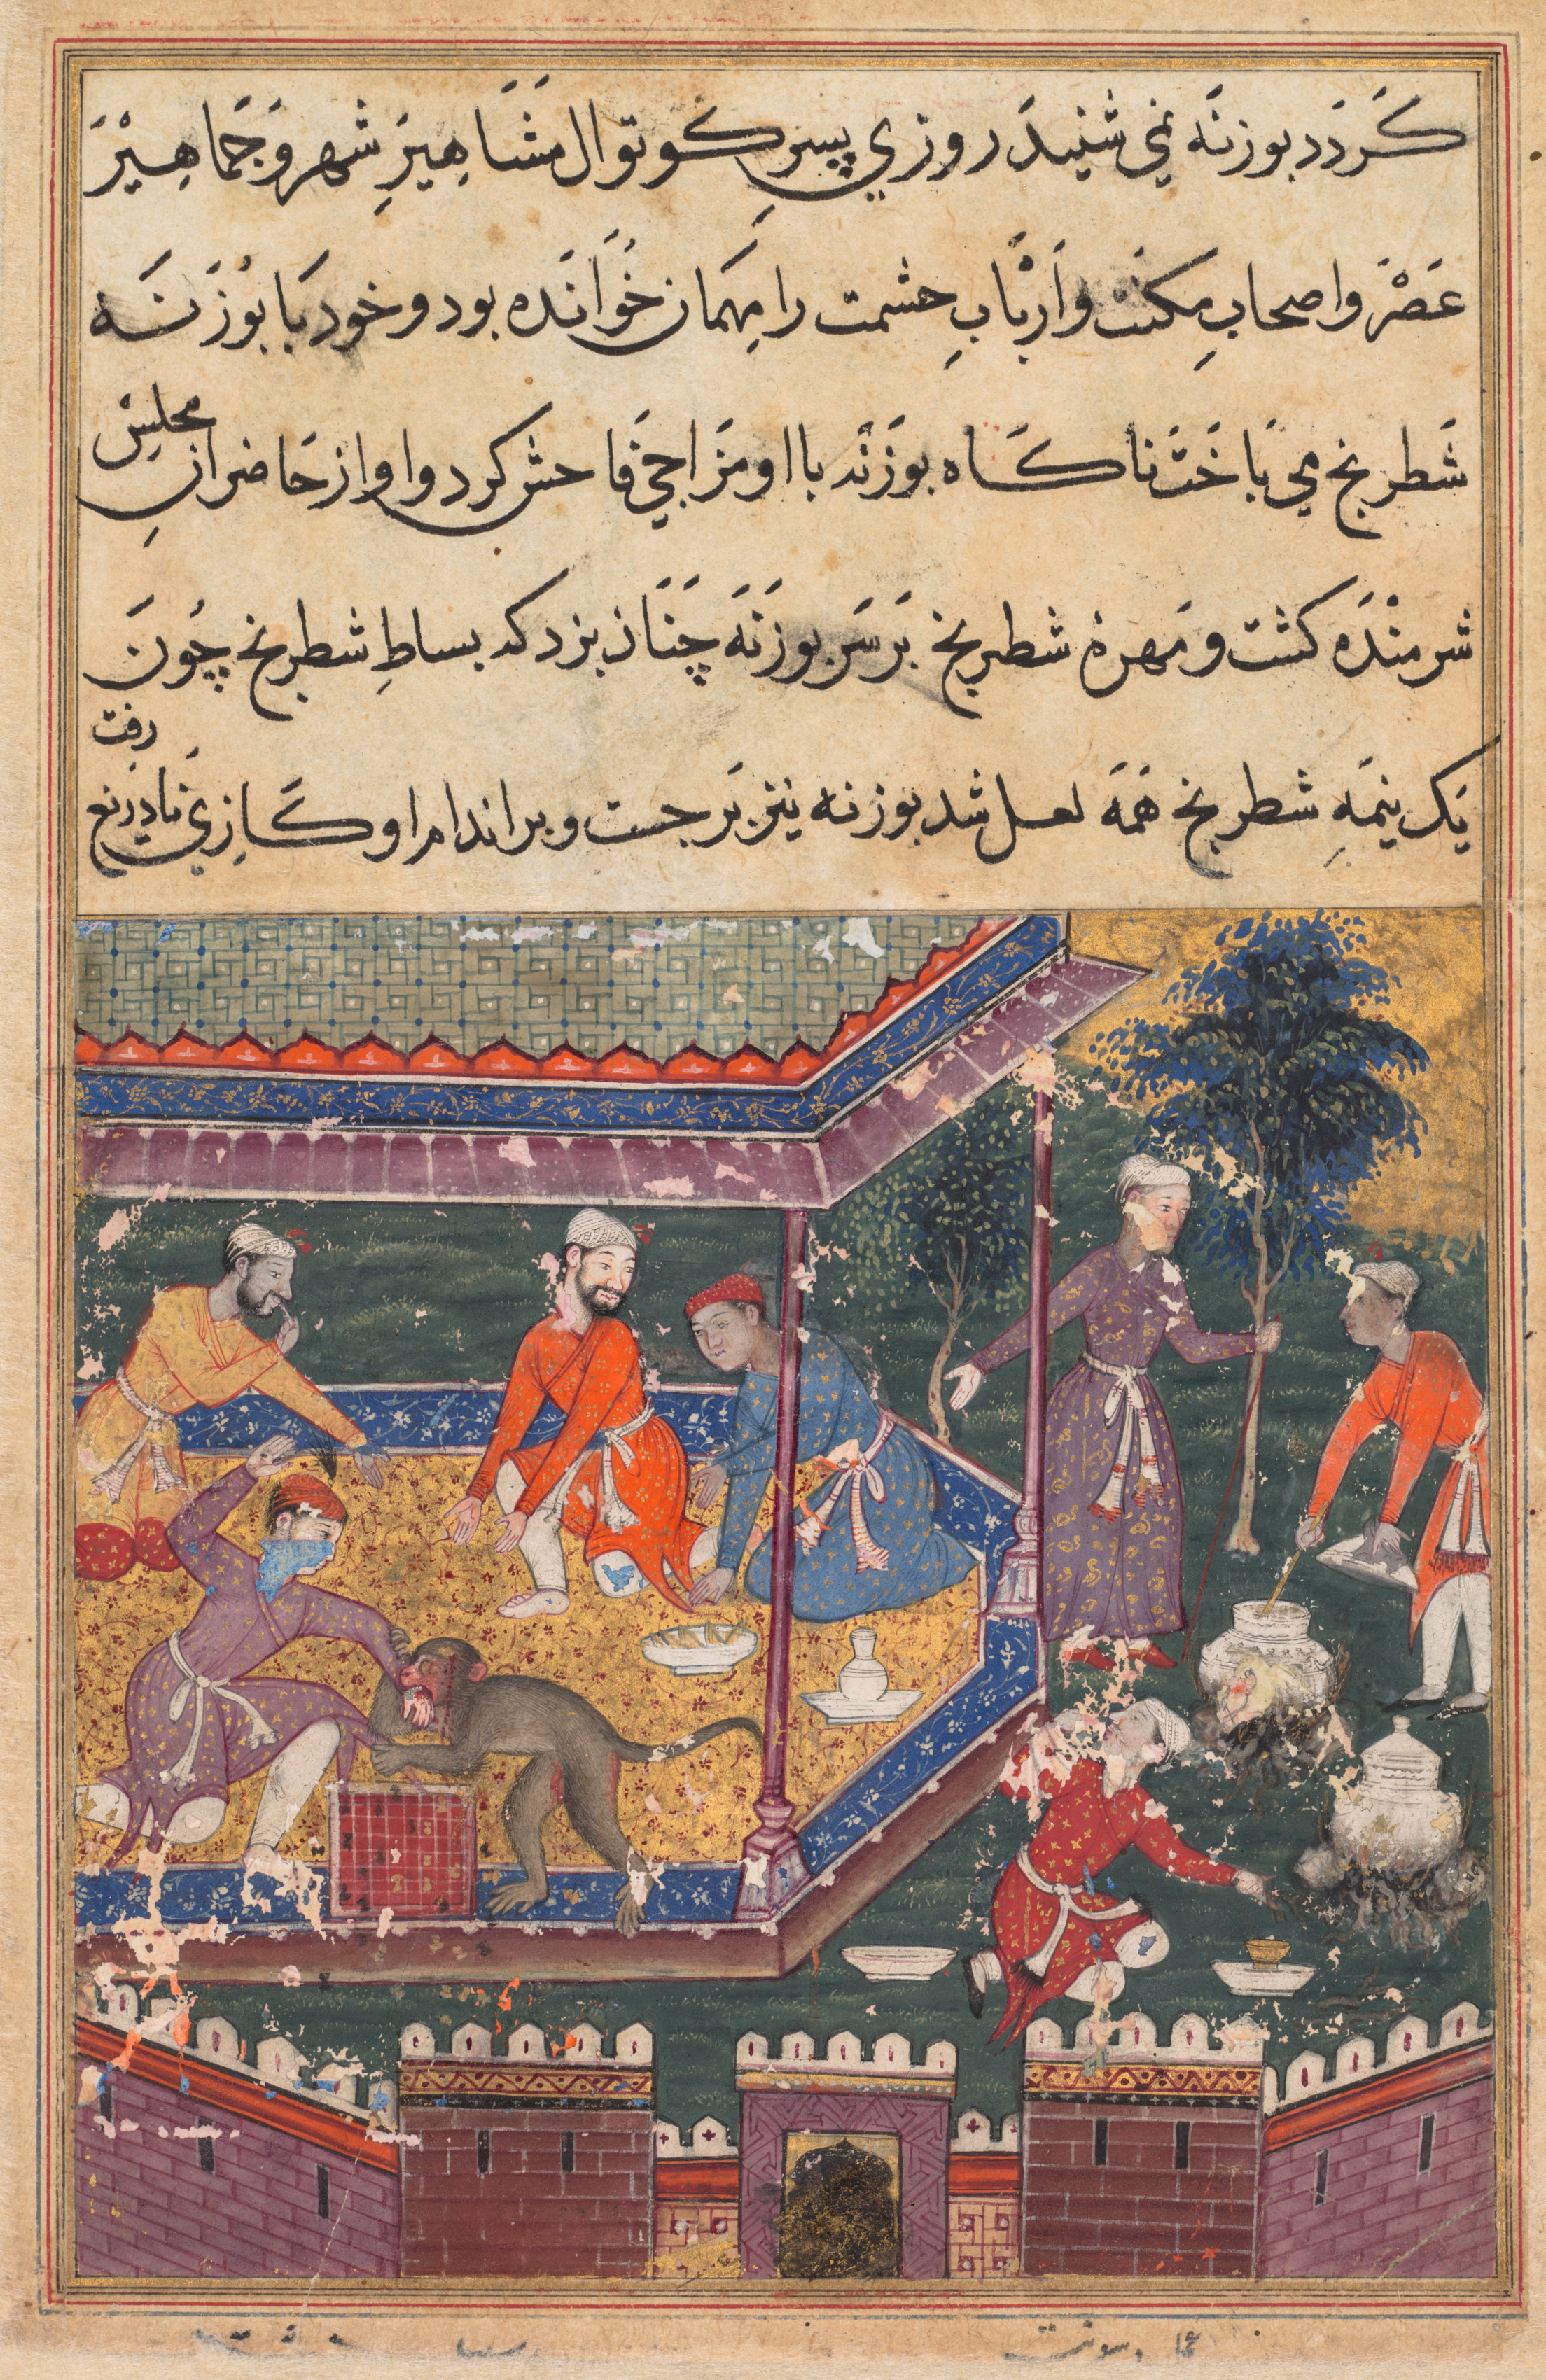 کَرَدَد بوزنَه نمی شنیدَ روزي پسرِ کوتوال مَشَاهِیرِ شهر وَ جَمَاهِیْرَ
عَصْرَ و اصحابِ مکنت و اَرْبَابِ حشمت را مِهمَان خُوَانَده بود و خود بَا بُوزَنَه
شَطرنج مي بَاخَتْ ناکَاه بوزَنَه با او مَزَاحِي فَاحش کرد و او از حَاضرانِ مجلِسْ
شرمنْدَه کشت و مَهرهٔ شطرنج بَر سَر بوزَنَه چَنَان بزد که بساطِ شطرنج چُونَ
یَک نیمَهِ شطرنج هَمَه لعل شد بوزنه نیز بَر جست و بر اندام او کَازِي نادِر رفت